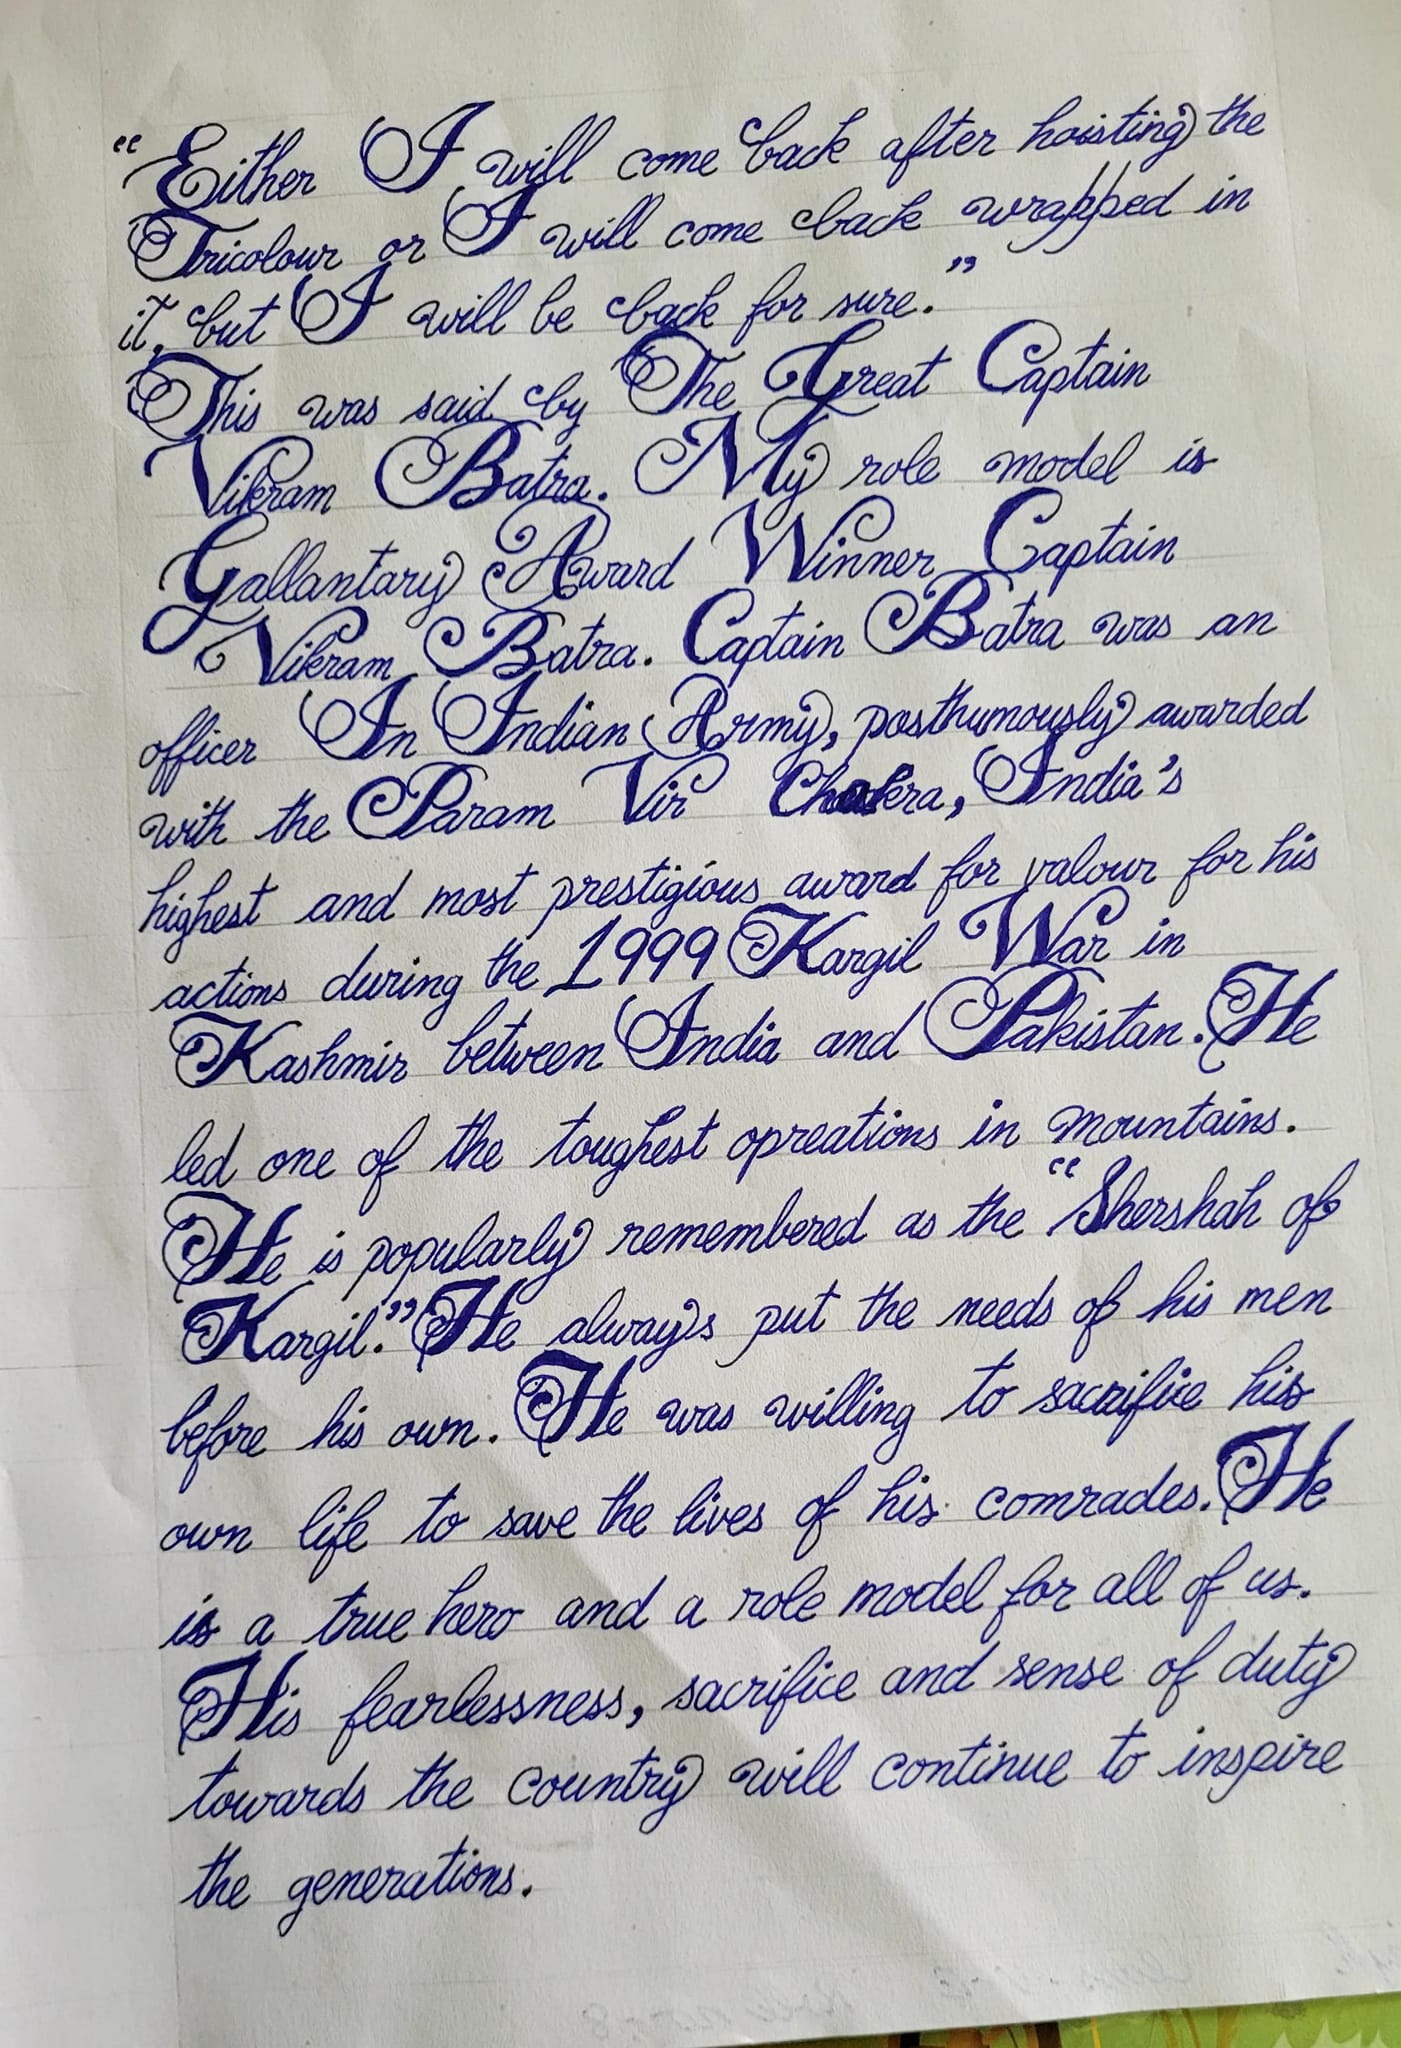 “Either I will come back after hoisting the
Tricolour or I will come back wrapped in
it, but I will be back for sure.”
This was said by The Great Captain
Vikram Batra. My role model is
Gallantary Award Winner Captain
Vikram Batra. Captain Batra was an
officer In Indian Army, posthumously awarded
with the Param Vir Chakra, India's
highest and most prestigious award for valour for his
actions during the 1999 Kargil War in
Kashmir between India and Pakistan. He
led one of the toughest opreations in mountains.
He is popularly remembered as the “Shershah of
Kargil.” He always put the needs of his men
before his own. He was willing to sacrifice his
own life to save the lives of his comrades. He
is a true hero and a role model for all of us.
His fearlessness, sacrifice and sense of duty
towards the country will continue to inspire
the generations.